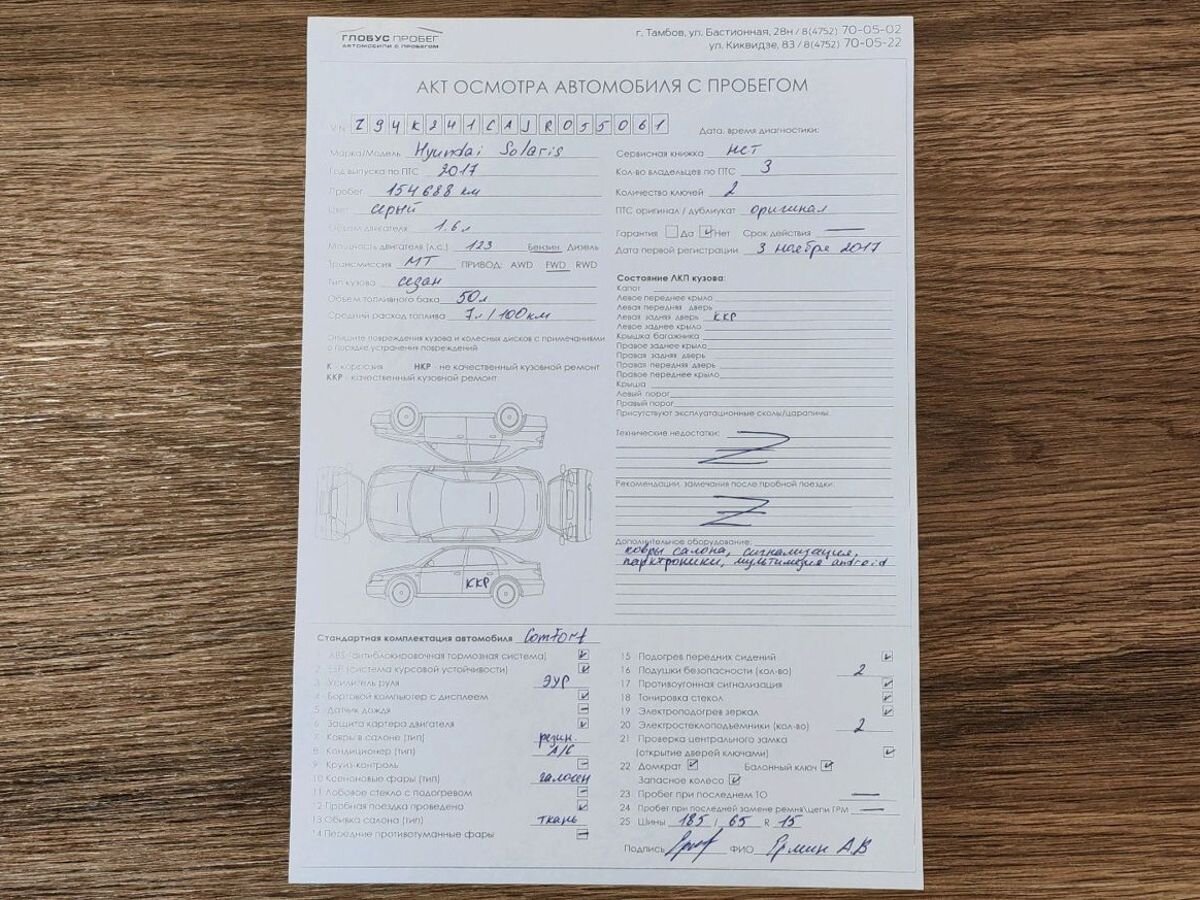 ГЛОБУС ПРОБЕГ
АВТОМОБИЛИ С ПРОБЕГОМ
г. Тамбов, ул. Бастионная, 28н / 8(4752) 70-05-02
ул. Киквидзе, 83 / 8(4752) 70-05-22
АКТ ОСМОТРА АВТОМОБИЛЯ С ПРОБЕГОМ
VIN Z94K241CAJR055061
Дата, время диагностики:
Марка/Модель Hyundai Solaris
Год выпуска по ПТС 2017
Пробег 154688 км
Цвет серый
Объем двигателя 1.6л
Мощность двигателя (л.с.) 123 Бензин Дизель
Трансмиссия МТ ПРИВОД: AWD FWD RWD
Тип кузова седан
Объем топливного бака 50л
Средний расход топлива 7л/100км
Опишите повреждения кузова и колесных дисков с примечаниями
о порядке устранения повреждений
К - коррозия НКР - не качественный кузовной ремонт
ККР - качественный кузовной ремонт
ККР
Сервисная книжка нет
Кол-во владельцев по ПТС 3
Количество ключей 2
ПТС оригинал / дубликат оригинал
Гарантия Да Нет Срок действия —
Дата первой регистрации 3 ноября 2017
Состояние ЛКП кузова:
Капот
Левое переднее крыло
Левая передняя дверь
Левая задняя дверь ККР
Левое заднее крыло
Крышка багажника
Правое заднее крыло
Правая задняя дверь
Правая передняя дверь
Правое переднее крыло
Крыша
Левый порог
Правый порог
Присутствуют эксплуатационные сколы/царапины.
Технические недостатки:
Рекомендации, замечания после пробной поездки:
Дополнительное оборудование:
ковры салона, сигнализация,
парктроники, мультимедия android
Стандартная комплектация автомобиля Comfort
1 ABS (антиблокировочная тормозная система)
2 ESP (система курсовой устойчивости)
3 Усилитель руля ЭУР
4 Бортовой компьютер с дисплеем
5 Датчик дождя
6 Защита картера двигателя
7 Ковры в салоне (тип) резин.
8 Кондиционер (тип) A/C
9 Круиз-контроль
10 Ксеноновые фары (тип) галоген
11 Лобовое стекло с подогревом
12 Пробная поездка проведена
13 Обивка салона (тип) ткань
14 Передние противотуманные фары
15 Подогрев передних сидений
16 Подушки безопасности (кол-во) 2
17 Противоугонная сигнализация
18 Тонировка стекол
19 Электроподогрев зеркал
20 Электростеклоподъемники (кол-во) 2
21 Проверка центрального замка
(открытие дверей ключами)
22 Домкрат Балонный ключ
Запасное колесо
23 Пробег при последнем ТО —
24 Пробег при последней замене ремня\цепи ГРМ —
25 Шины 185 / 65 R 15
Подпись ФИО Ярмин А.В